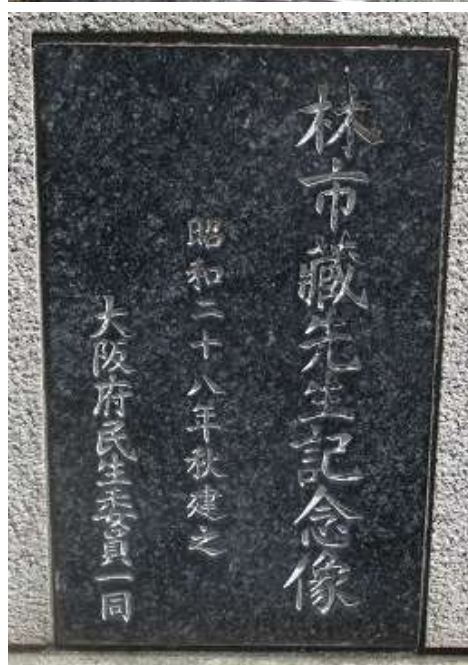 林市藏先生記念像
昭和二十八年秋建之
大阪府民生委員一同